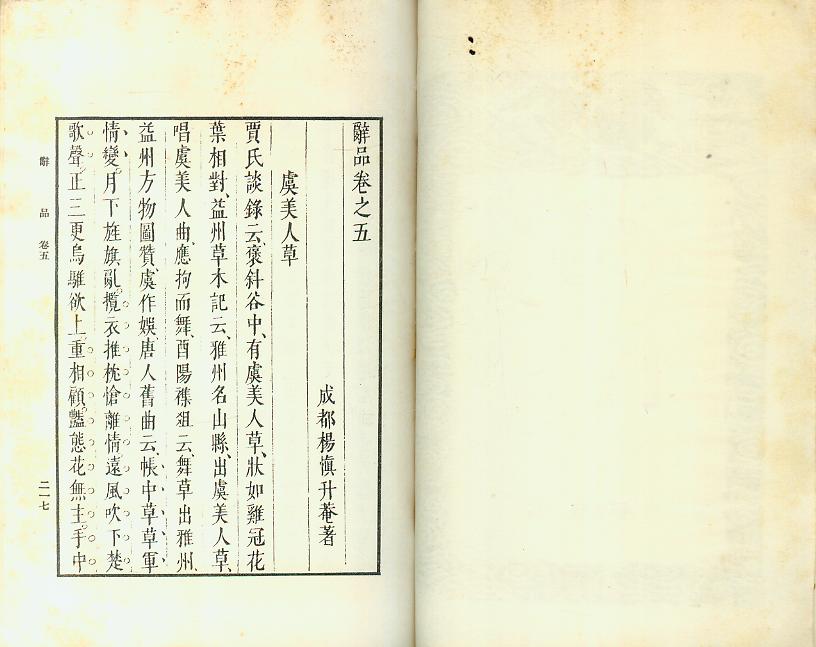 辭品卷之五
成都楊愼升菴著
虞美人草
賈氏談錄云、褒斜谷中、有虞美人草、狀如雞冠花
葉相對、益州草木記云、雅州名山縣、出虞美人草、
唱虞美人曲、應拘而舞、酉陽襍俎云、舞草出雅州、
益州方物圖贊、虞作娛、唐人舊曲云、帳中草草軍
情變。月下旌旗亂。攬衣推枕愴離情。遠風吹下楚
歌聲。正三更烏騅欲上。重相顧。豔態花無主。手中
辭品 卷五
二一七